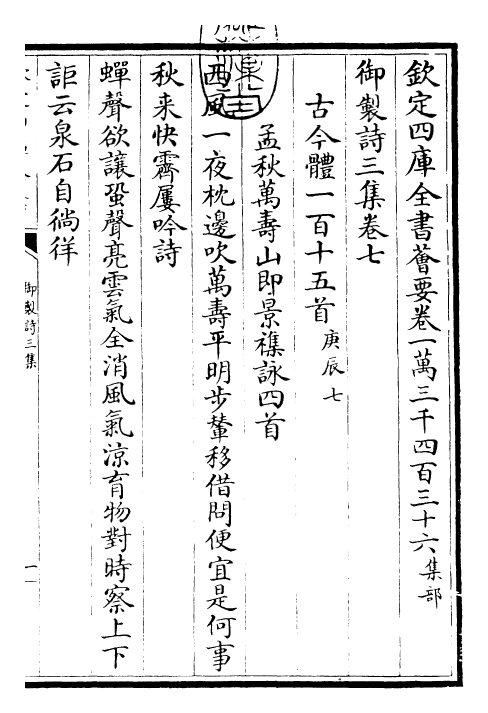 欽定四庫全書薈要卷一萬三千四百三十六集部
御製詩三集卷七
古今體一百十五首庚辰七
孟秋萬壽山即景襍詠四首
西風一夜枕邊吹萬壽平明步輦移借問便宜是何事
秋来快霽屢吟詩
蟬聲欲讓蛩聲亮雲氣全消風氣涼育物對時察上下
詎云泉石自徜徉
御製詩三集
一